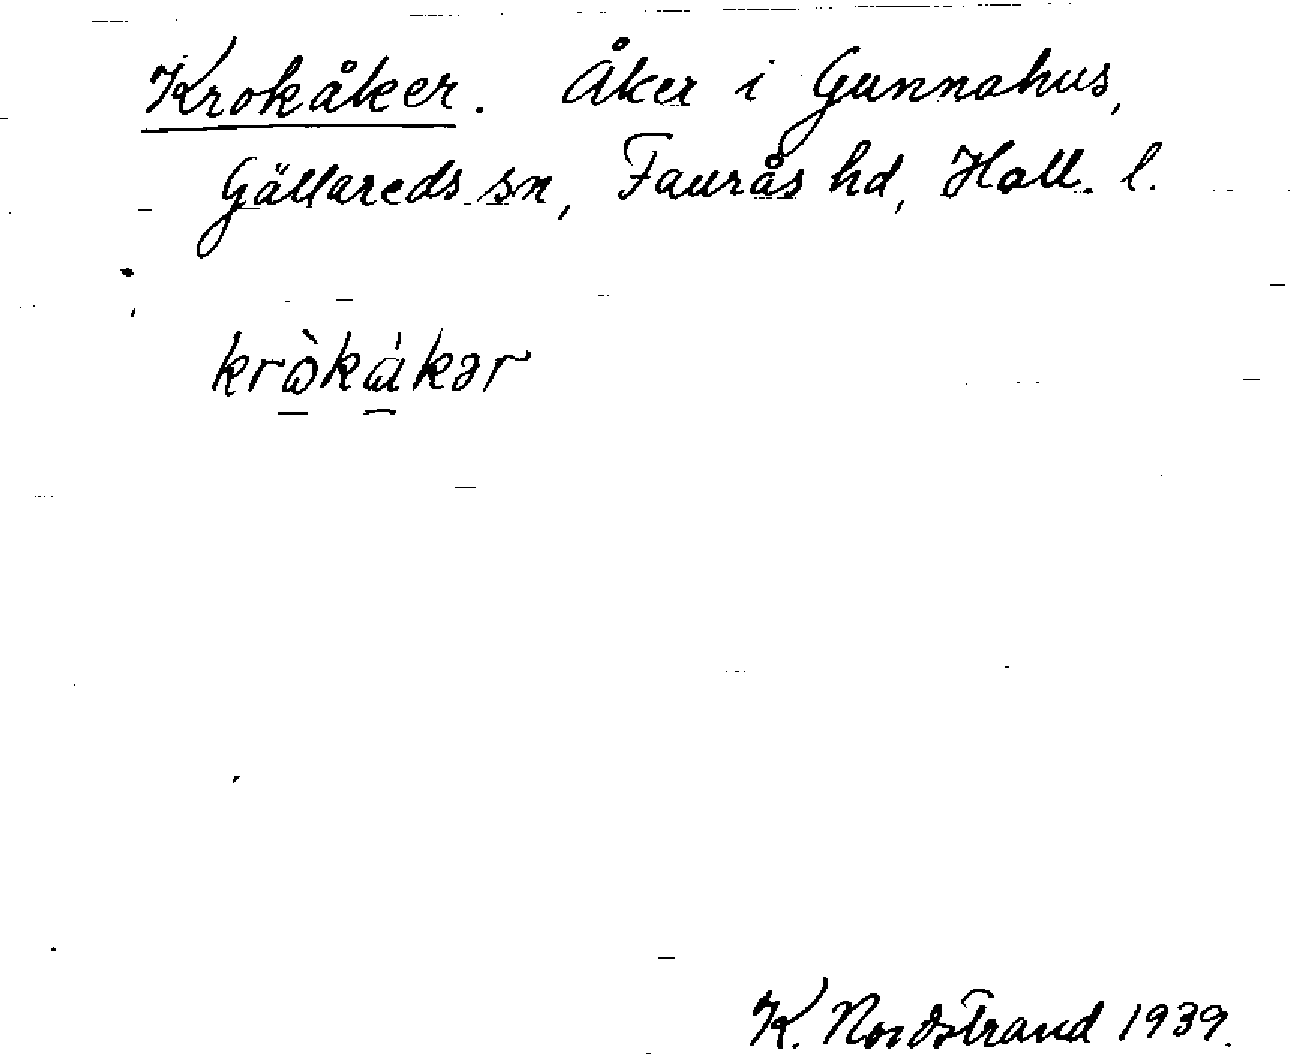 Krokåker. Åker i Gunnahus,
Gällareds sn, Faurås hd, Hall. l.
kròkákər
K. Nordstrand 1939.